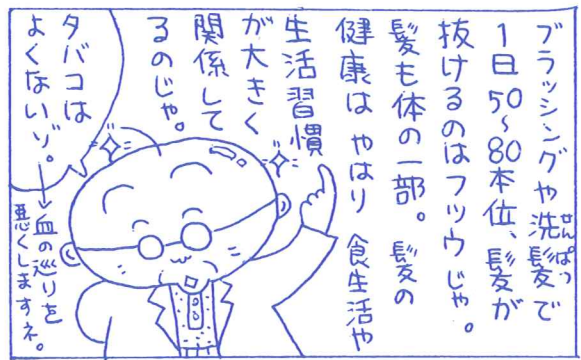 ブラッシングや洗髪で
せんぱつ
1日50~80本位、髪が
抜けるのはフツウじゃ。
髪も体の一部。髪の
健康はやはり食生活や
生活習慣
が大きく
関係して
るのじゃ。
タバコは
よくないゾ。
→血の巡りを
悪くしますネ。